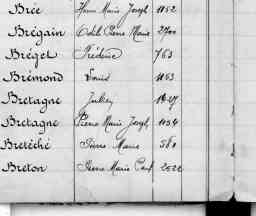 Brée Marie Joseph 1052
Brégain Odile Pierre Marie 2700
Bréget Frédéric 763
Brémond Louis 1063
Bretagne Julien 1827
Bretagne Pierre Marie Joseph 1094
Bretéché Pierre Marie 580
Breton Pierre Marie 2022